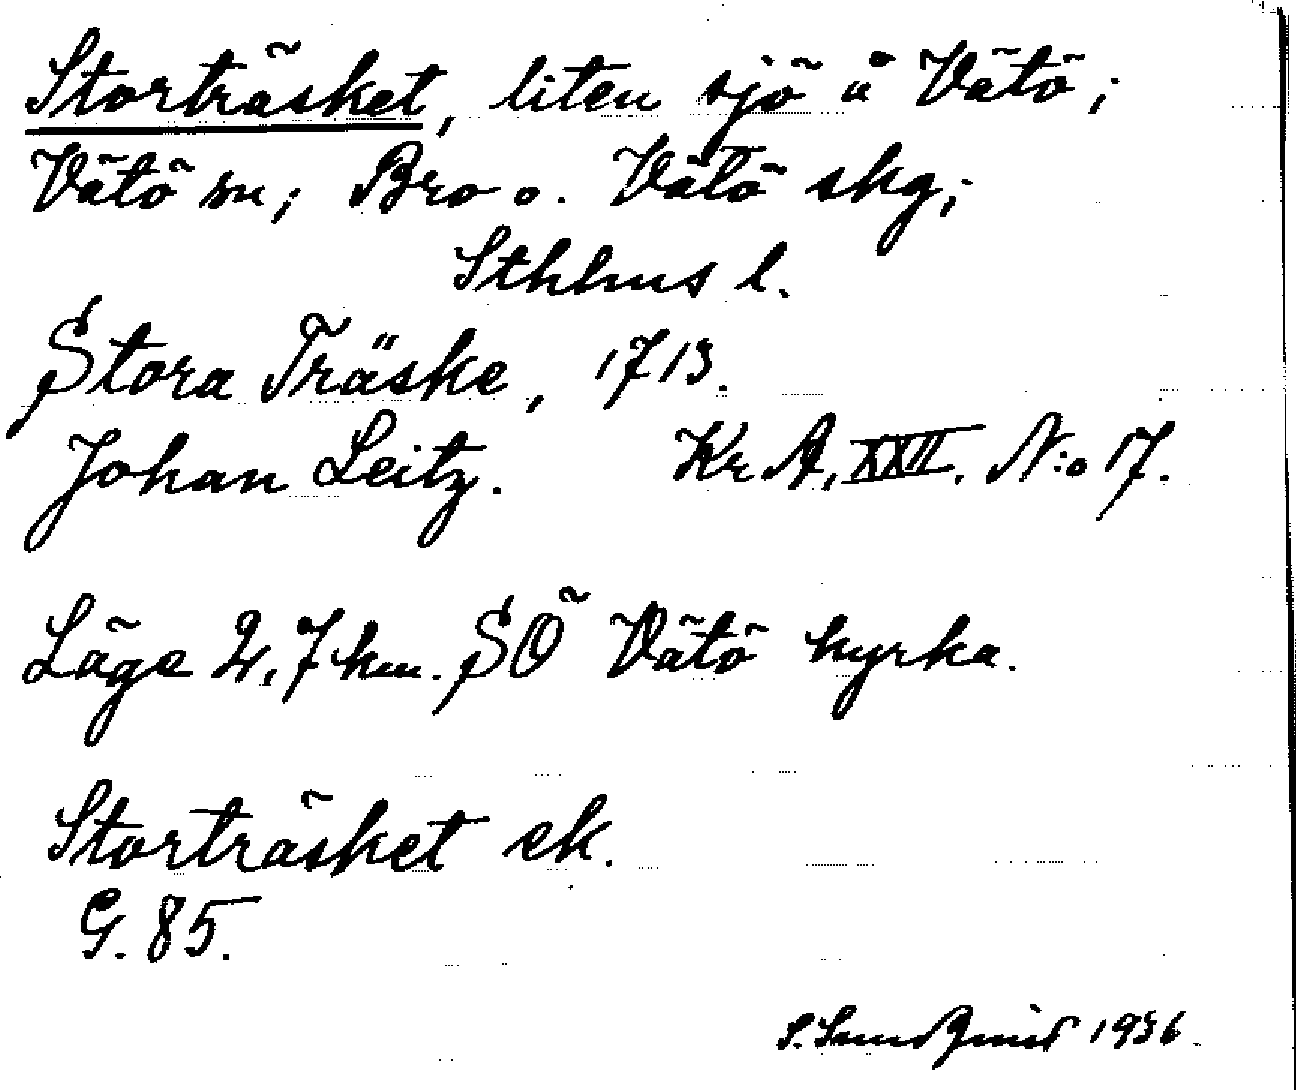 Storträsket, liten sjö å Vätö;
Vätö sn; Bro o. Vätö skg;
Sthlms l.
Stora Träske, 1713.
Johan Leitz. Kr. A. XXII. N:o 17.
Läge 2,7 km. SÖ Vätö kyrka.
Storträsket ek.
G. 85.
S. Sundqvist 1936